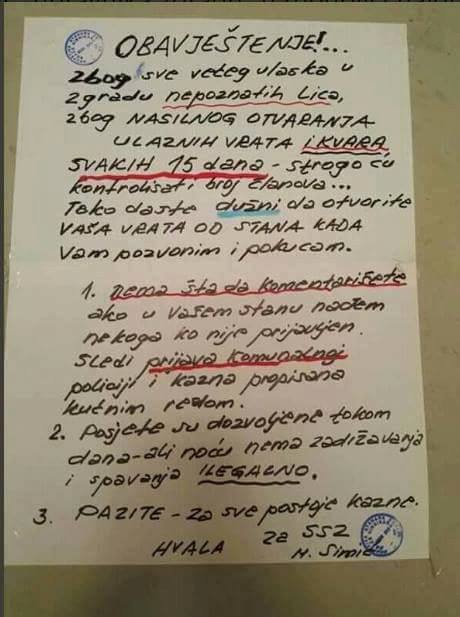 OBAVJEŠTENJE!...
zbog sve većeg ulaska u
zgradu nepoznatih lica,
zbog NASILNOG OTVARANJA
ULAZNIH VRATA i KVARA
SVAKIH 15 dana - strogo ću
kontrolisati broj članova...
Tako da ste dužni da otvorite
VAŠA VRATA OD STANA KADA
Vam pozvonim i pokucam.
1. Nema šta da komentarišete
ako u vašem stanu nađem
nekoga ko nije prijavljen.
Sledi prijava komunalnoj
policiji i kazna propisana
kućnim redom.
2. Posjete su dozvoljene tokom
dana - ali noću nema zadržavanja
i spavanja ILEGALNO.
3. PAZITE - za sve postoje kazne.
HVALA
Za SSZ
N. Simić